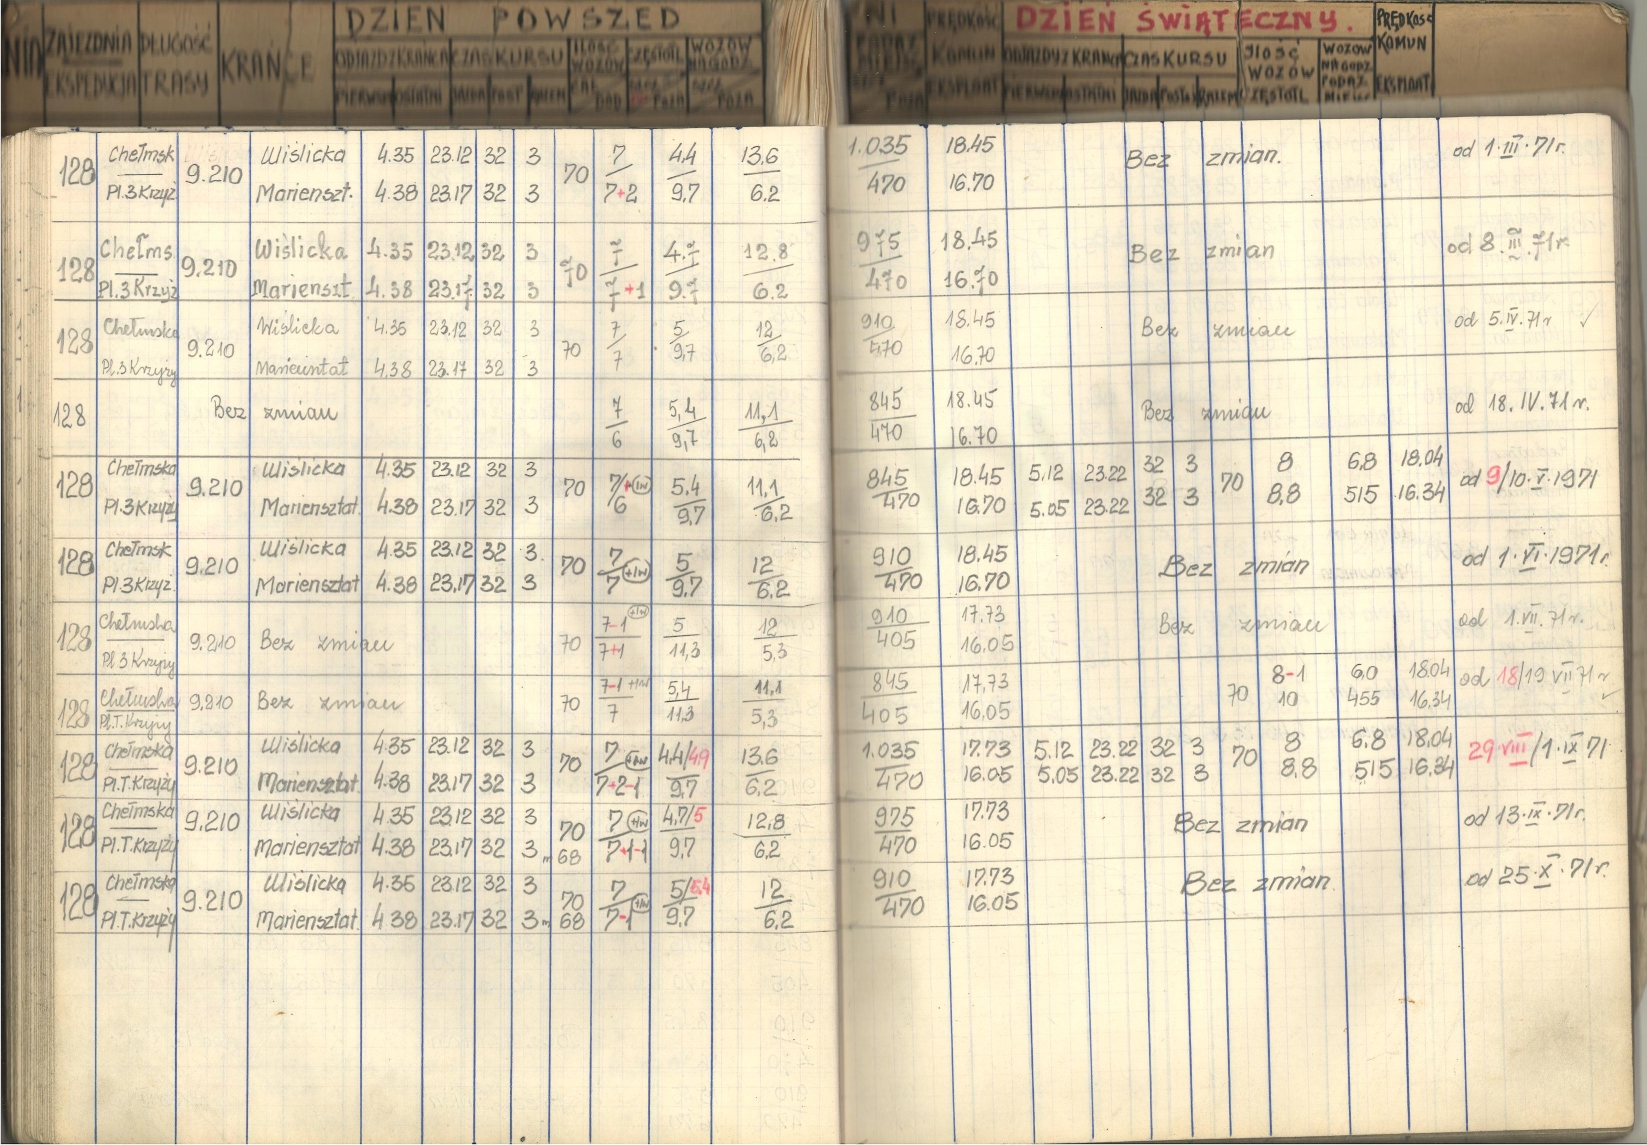 DZIEŃ POWSZED
DZIEŃ ŚWIĄTECZNY.
ZAJEZDNIA DŁUGOŚĆ KRAŃCE
EKSPEDYCJA TRASY
ODJAZD Z KRAŃCA CZAS KURSU ILOŚĆ WOZÓW CZĘSTOTL WOZÓW NA GODZ.
PIERWSZY OSTATNI JAZDA POST RAZEM
PRĘDKOŚĆ KOMUN EKSPLOAT
ODJAZDY Z KRAŃCA CZAS KURSU ILOŚĆ WOZÓW CZĘSTOTL WOZÓW NA GODZ PODAŻ MIEJSC PRĘDKOŚĆ KOMUN EKSPLOAT
PIERWSZY OSTATNI JAZDA POSTÓJ RAZEM
128 Chełmsk 9.210 Wiślicka 4.35 23.12 32 3 70 7 4.4 13.6 1.035 18.45 Bez zmian. od 1.III.71r.
Pl.3Krzyż Marienszt. 4.38 23.17 32 3 7+2 9,7 6.2 470 16.70
128 Chełms. 9.210 Wiślicka 4.35 23.12 32 3 70 7 4.7 12.8 975 18.45 Bez zmian od 8.III.71r.
Pl.3Krzyż Marienszt 4.38 23.17 32 3 7+1 9.7 6.2 470 16.70
128 Chełmska 9.210 Wiślicka 4.35 23.12 32 3 70 7 5 12 910 18.45 Bez zmian od 5.IV.71r ✓
Pl.3Krzyży Mariensztat 4.38 23.17 32 3 7 9,7 6,2 470 16.70
128 Bez zmian 7 5,4 11,1 845 18.45 Bez zmian od 18.IV.71r.
6 9,7 6,2 470 16.70
128 Chełmska 9.210 Wiślicka 4.35 23.12 32 3 70 7/+1w 5.4 11,1 845 18.45 5.12 23.22 32 3 70 8 6,8 18.04 od 9/10.V.1971
Pl.3Krzyży Mariensztat 4.38 23.17 32 3 6 9,7 6,2 470 16.70 5.05 23.22 32 3 8,8 515 16.34
128 Chełmsk 9.210 Wiślicka 4.35 23.12 32 3. 70 7 +1w 5 12 910 18.45 Bez zmian od 1.VI.1971r.
Pl3Krzyż. Mariensztat 4.38 23.17 32 3 7 9.7 6,2 470 16.70
128 Chełmska 9.210 Bez zmian 70 7-1 +1w 5 12 910 17.73 Bez zmian od 1.VII.71r.
Pl 3 Krzyży 7+1 11,3 5,3 405 16.05
128 Chełmska 9.210 Bez zmian 70 7-1 +1w 5,4 11,1 845 17,73 70 8-1 6,0 18.04 od 18/19 VII 71r ✓
Pl.T.Krzyży 7 11,3 5,3 405 16,05 10 455 16,34
128 Chełmska 9.210 Wiślicka 4.35 23.12 32 3 70 7 +1w 4.4/4,9 13.6 1.035 17.73 5.12 23.22 32 3 70 8 6.8 18.04 29.VIII/1.IX 71
Pl.T.Krzyży Mariensztat 4.38 23.17 32 3 7+2-1 9,7 6,2 470 16.05 5,05 23.22 32 3 8,8 515 16,34
128 Chełmska 9.210 Wiślicka 4.35 23.12 32 3 70 7 +1w 4,7/5 12,8 975 17.73 Bez zmian od 13.IX.71r.
Pl.T.Krzyży Mariensztat 4.38 23.17 32 3 68 7+1-1 9,7 6,2 470 16.05
128 Chełmska 9.210 Wiślicka 4.35 23.12 32 3 70 7 +1w 5/5,4 12 910 17.73 Bez zmian od 25.X.71r.
Pl.T.Krzyży Mariensztat 4.38 23.17 32 3 68 7-1 9.7 6,2 470 16.05